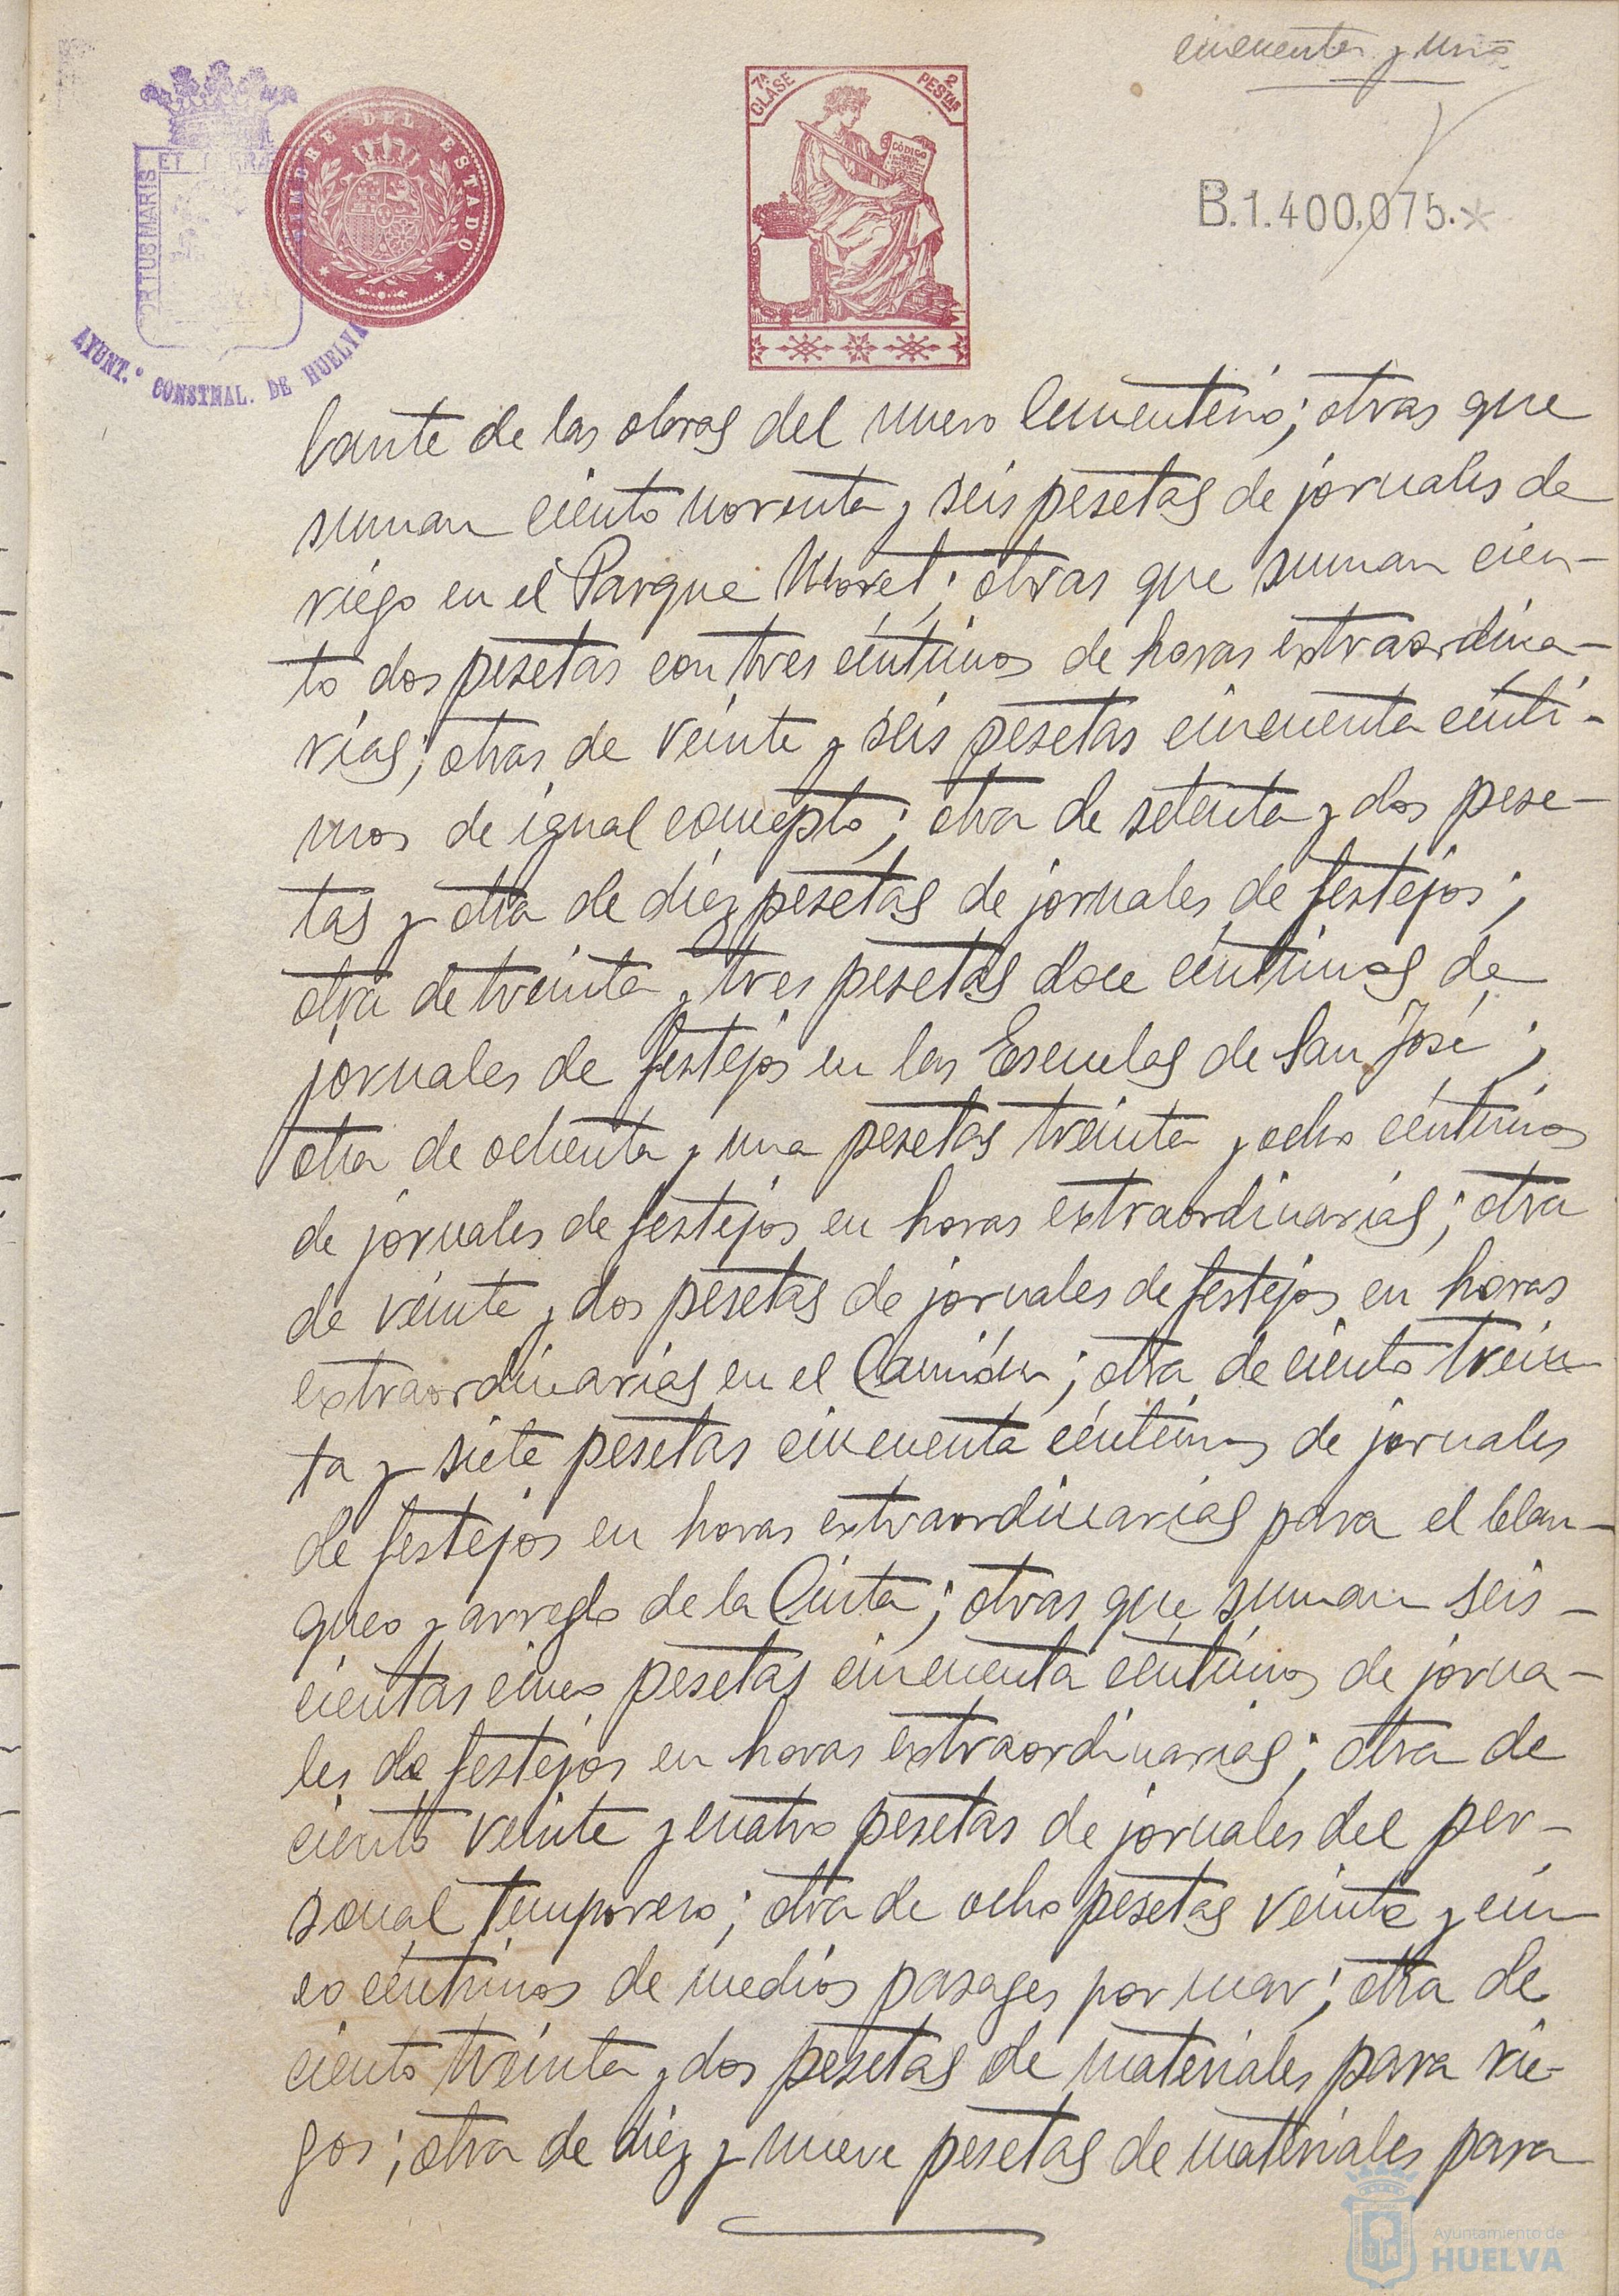 cincuenta y uno
7ª CLASE
2 PESTAS
CÓDIGO
TIMBRE DEL ESTADO
PORTUS MARIS
ET TERRÆ
AYUNT.º CONSTNAL. DE HUELVA
B.1.400,075.*
bante de las obras del nuevo Cementerio; otras que
suman ciento noventa y seis pesetas de jornales de
riego en el Parque Moret; otras que suman cien-
to dos pesetas con tres céntimos de horas extraordina-
rias; otras de veinte y seis pesetas cincuenta cénti-
mos de igual concepto; otra de setenta y dos pese-
tas y otra de diez pesetas de jornales de festejos;
otra de treinta y tres pesetas doce céntimos de
jornales de festejos en las Escuelas de San José;
otra de ochenta y una pesetas treinta y ocho céntimos
de jornales de festejos en horas extraordinarias; otra
de veinte y dos pesetas de jornales de festejos en horas
extraordinarias en el Camión; otra de ciento trein
ta y siete pesetas cincuenta céntimos de jornales
de festejos en horas extraordinarias para el blan-
queo y arreglo de la Cinta; otras que suman seis-
cientas cinco pesetas cincuenta céntimos de jorna-
les de festejos en horas extraordinarias; otra de
ciento veinte y cuatro pesetas de jornales del per-
sonal temporero; otra de ocho pesetas veinte y cin
co céntimos de medios pasages por mar; otra de
ciento treinta y dos pesetas de materiales para rie-
gos; otra de diez y nueve pesetas de materiales para
Ayuntamiento de
HUELVA